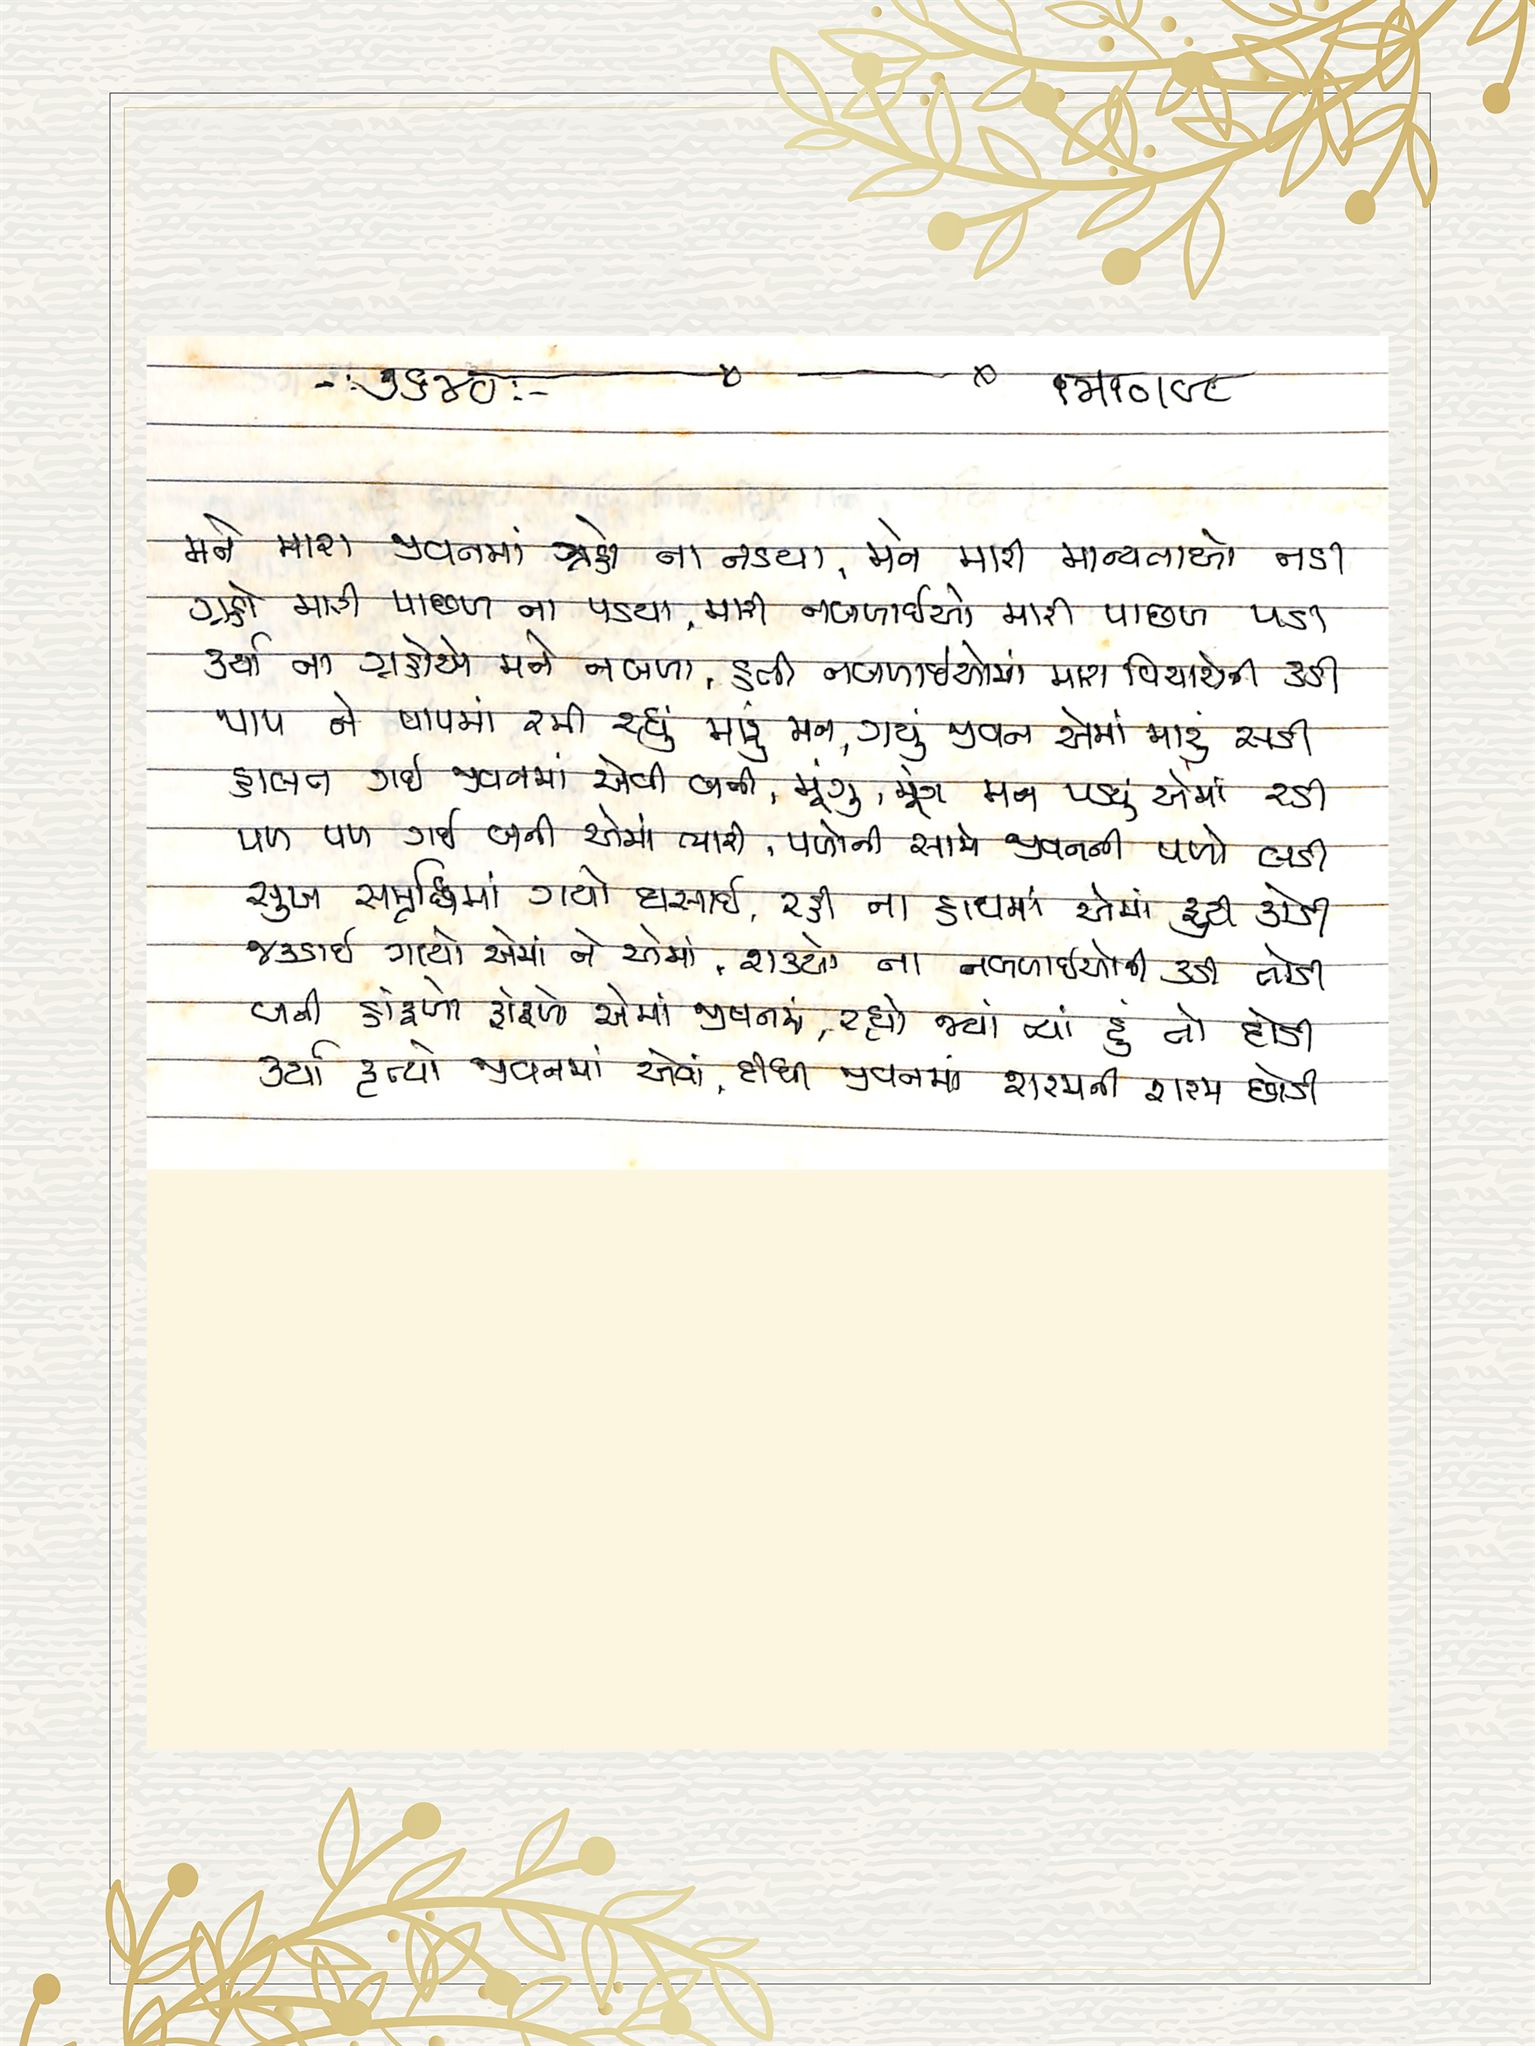 -: ૭૬૪૦ :-
મને મારા જીવનમાં ગ્રહો ના નડયા, મને મારી માન્યતાઓ નડી
ગ્રહો મારી પાછળ ના પડયા, મારી નબળાઈઓ મારી પાછળ પડી
કર્યા ના ગ્રહોએ મને નબળા, હતી નબળાઈઓમાં મારા વિચારોની કડી
પાપ ને પાપમાં રમી રહ્યું મારું મન, ગયું જીવન એમાં મારું સડી
હાલત ગઈ જીવનમાં એવી બની, મૂંગુ, મૂંગુ મન પડયું એમાં રડી
પળ પળ ગઈ બની એમાં ત્યારી, પળોની સામે જીવનની પળો લડી
સુખ સમૃદ્ધિમાં ગયો ઘસાઈ, રહી ના હાથમાં એમાં ફુટી કોડી
જકડાઈ ગયો એમાં ને એમાં, શક્યો ના નબળાઈઓની કડી તોડી
બની હાંફળો ફાંફળો એમાં જીવનમાં, રહ્યો જ્યાં ત્યાં હું તો દોડી
કર્યા કૃત્યો જીવનમાં એવાં, દીધી જીવનમાં શરમની શરમ છોડી